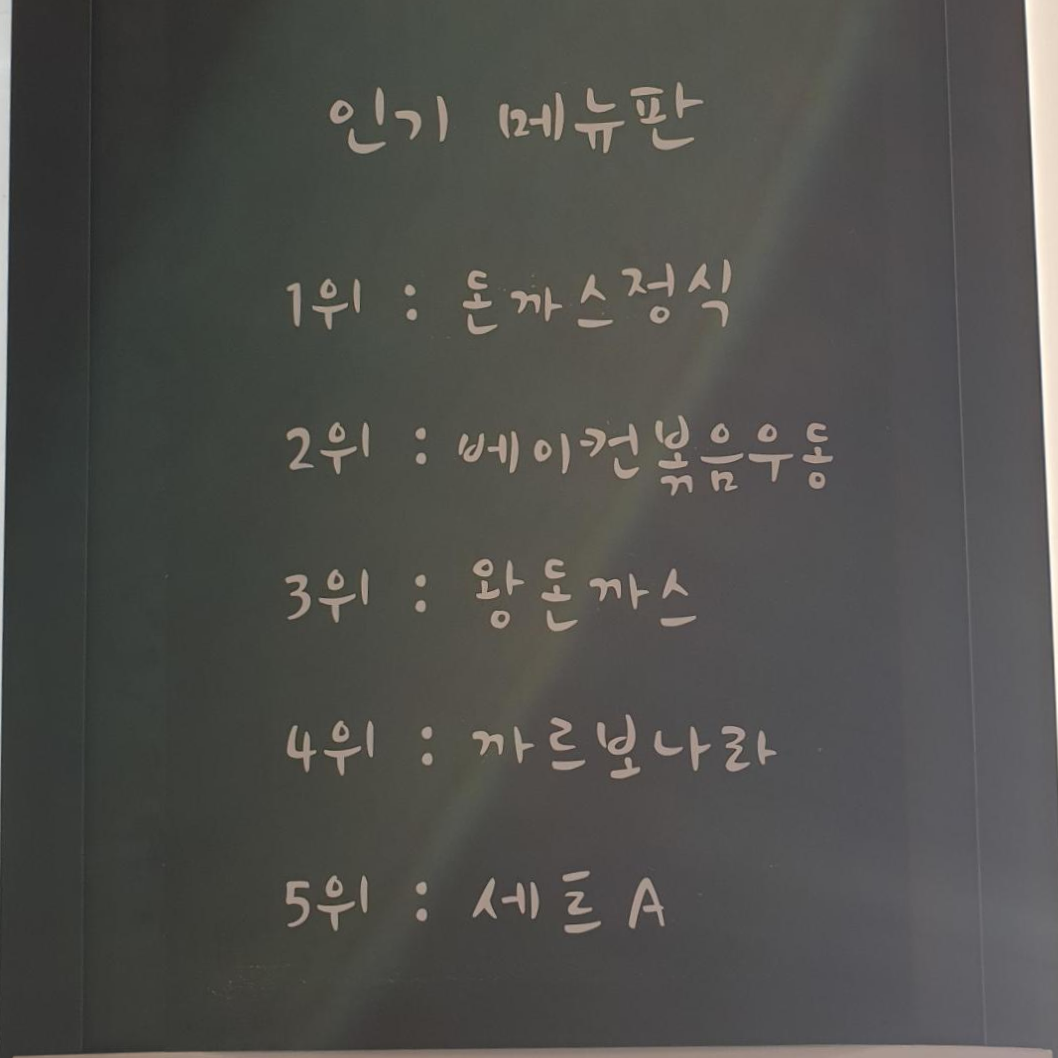 인기 메뉴판
1위 : 돈까스정식
2위 : 베이컨볶음우동
3위 : 왕돈까스
4위 : 까르보나라
5위 : 세트A